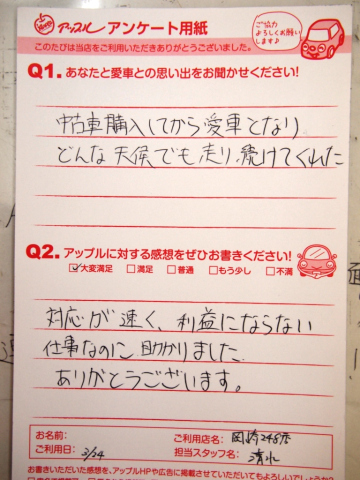 アップル アンケート用紙
ご協力
よろしくお願い
します♪
このたびは当店をご利用いただきありがとうございました。
Q1. あなたと愛車との思い出をお聞かせください!
中古車購入してから愛車となり
どんな天候でも走り続けてくれた
Q2. アップルに対する感想をぜひお書きください!
☑大変満足 □満足 □普通 □もう少し □不満
対応が速く、利益にならない
仕事なのに助かりました
ありがとうございます。
お名前:
ご利用店名: 岡崎248店
ご利用日: 2/24
担当スタッフ名: 清水
お書きいただいた感想を、アップルHPや広告に掲載させていただいてもよろしいでしょうか?